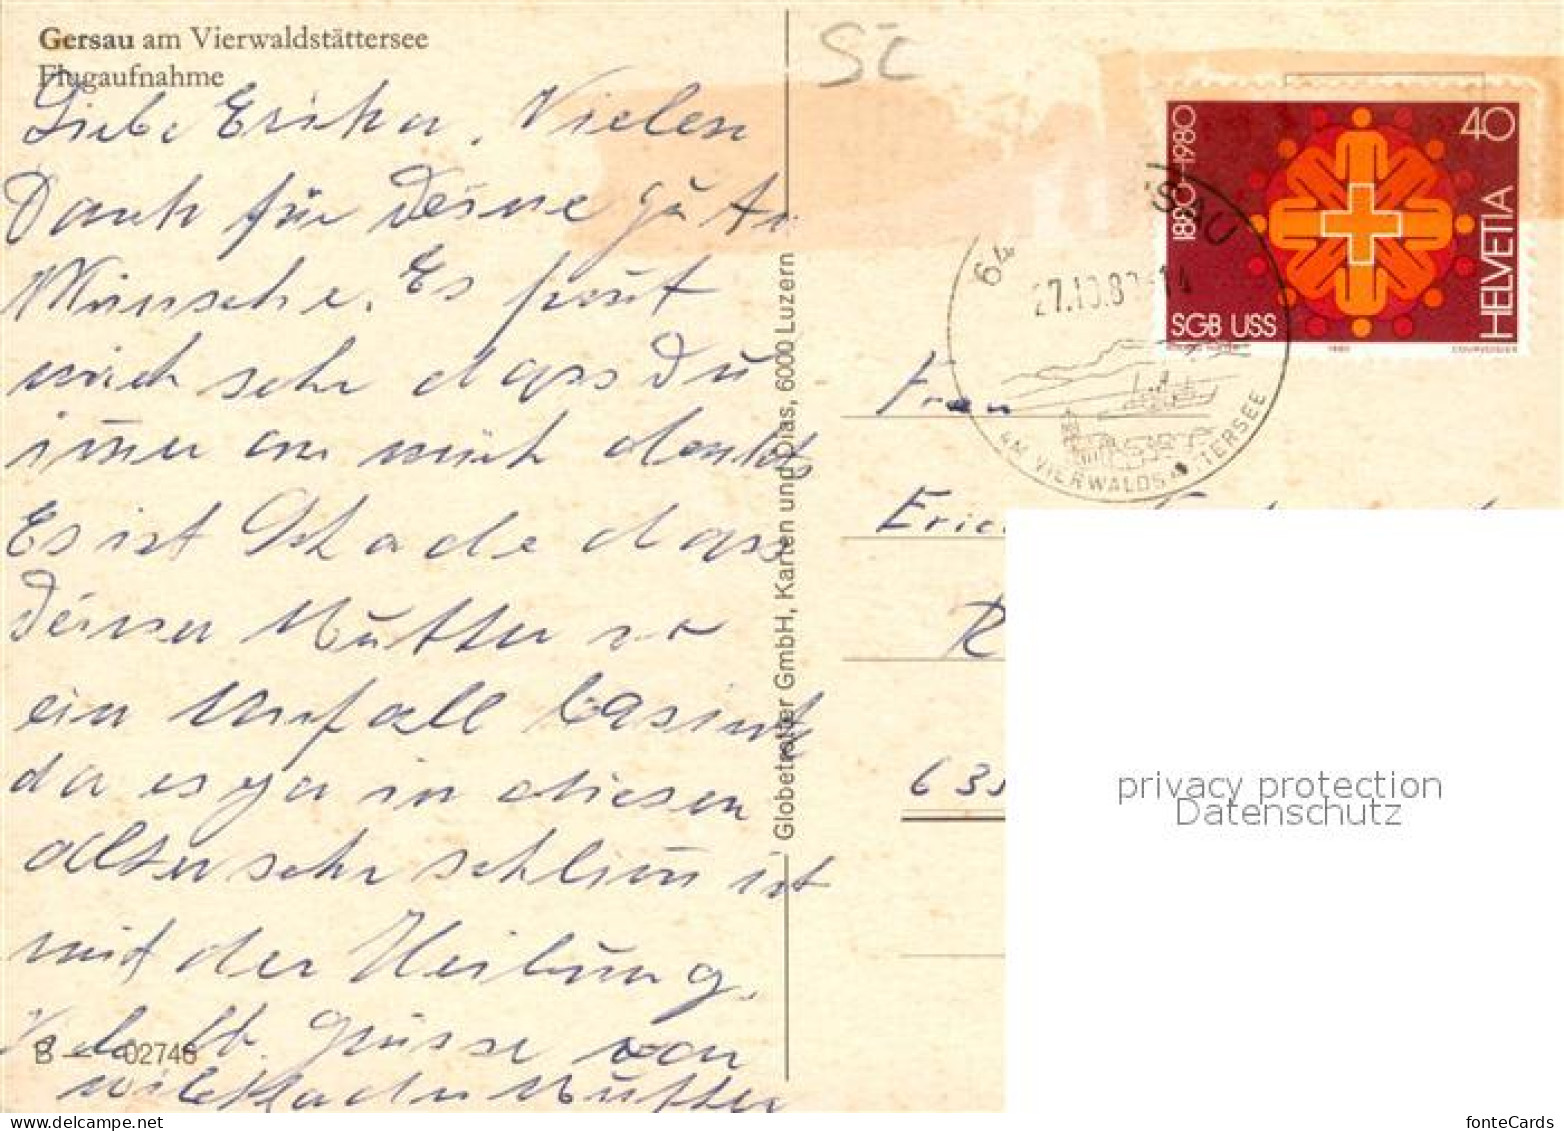 Gersau am Vierwaldstättersee
Flugaufnahme
Liebe Erika, Vielen
Dank für Deine gute
Wünsche. Es freut
mich sehr dass Du
immer an mich denkts
Es ist Schade dass
Deiner Mutter so
ein Unfall basiert
da es ja in diesen
alter sehr schlim ist
mit der Heilung.
Grüsse von
Mutter
B 02746
Globetrotter GmbH, Karten und Dias, 6000 Luzern
SC
1880-1980
40
HELVETIA
SGB USS
1980
COURVOISIER
64
27.10.8 -14
AM VIERWALDS TTERSEE
Frau
Eric
R
635
privacy protection
Datenschutz
www.delcampe.net
fonteCards